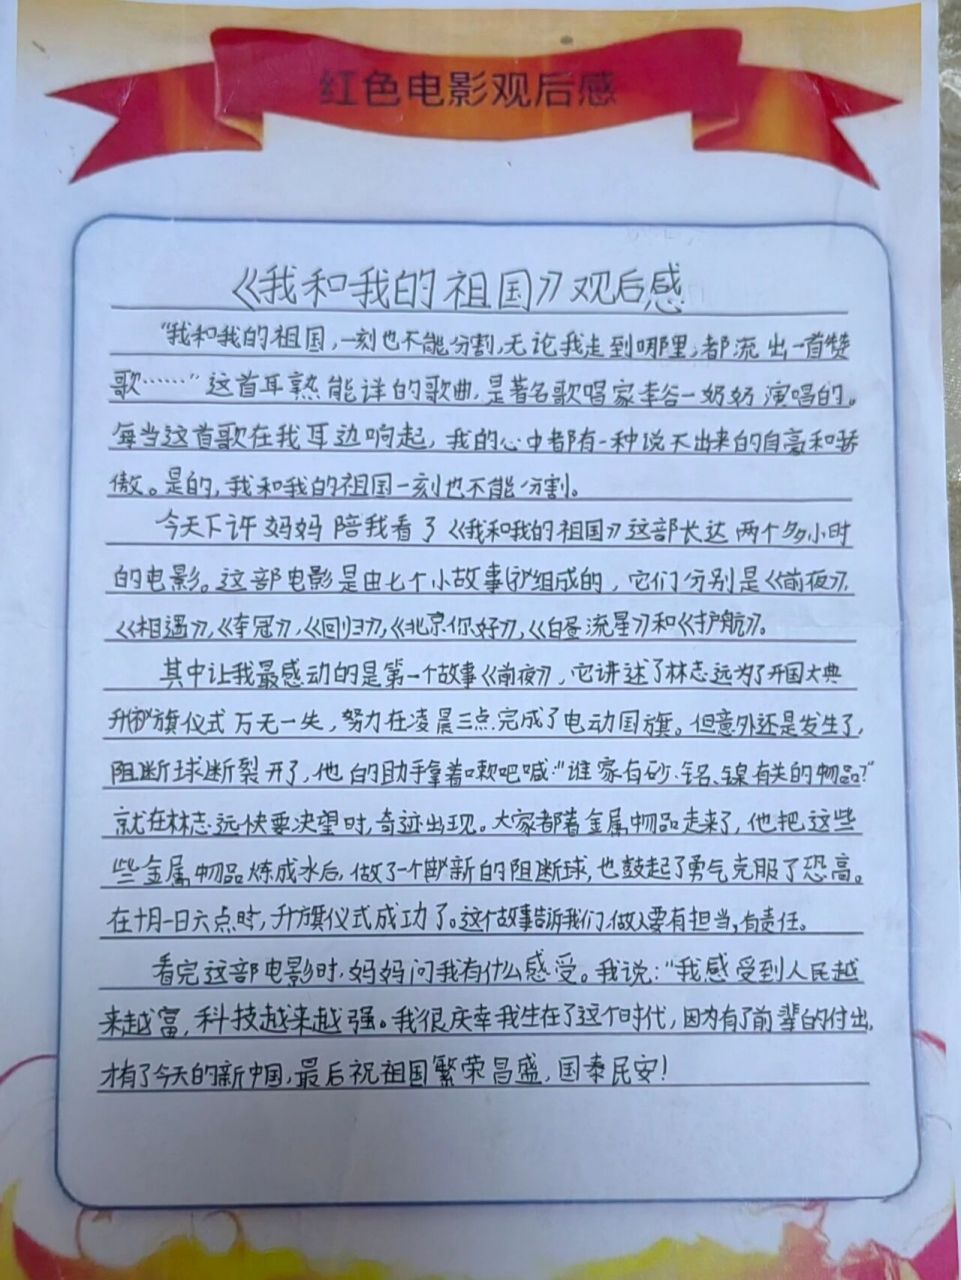 红色电影观后感
《我和我的祖国》观后感
“我和我的祖国，一刻也不能分割，无论我走到哪里，都流出一首赞
歌……”这首耳熟能详的歌曲，是著名歌唱家李谷一奶奶演唱的。
每当这首歌在我耳边响起，我的心中都有一种说不出来的自豪和骄
傲。是的，我和我的祖国一刻也不能分割。
今天下许妈妈陪我看了《我和我的祖国》这部长达两个多小时
的电影。这部电影是由七个小故事组成的，它们分别是《前夜》，
《相遇》，《夺冠》，《回归》，《北京你好》，《白昼流星》和《护航》。
其中让我最感动的是第一个故事《前夜》，它讲述了林志远为了开国大典
升旗仪式万无一失，努力在凌晨三点完成了电动国旗。但意外还是发生了，
阻断球断裂开了，他的助手拿着喇吧喊：“谁家有砂、铬、镍有关的物品？”
就在林志远快要决望时，奇迹出现。大家都着金属物品走来了，他把这些
些金属物品炼成水后，做了一个新的阻断球，也鼓起了勇气克服了恐高。
在十月一日六点时，升旗仪式成功了。这个故事告诉我们，做人要有担当，有责任。
看完这部电影时，妈妈问我有什么感受。我说：“我感受到人民越
来越富，科技越来越强。我很庆幸我生在了这个时代，因为有了前辈的付出，
才有了今天的新中国，最后祝祖国繁荣昌盛，国泰民安！